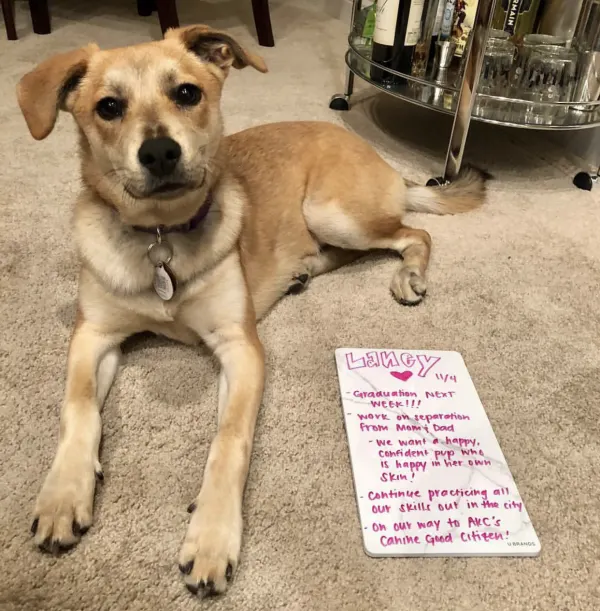 LaNEY
11/4
- Graduation NEXT
WEEK!!!
- work on separation
from Mom & Dad
- we want a happy,
confident pup who
is happy in her own
skin!
- Continue practicing all
our skills out in the city
- on our way to AKC's
Canine Good Citizen!
U BRANDS